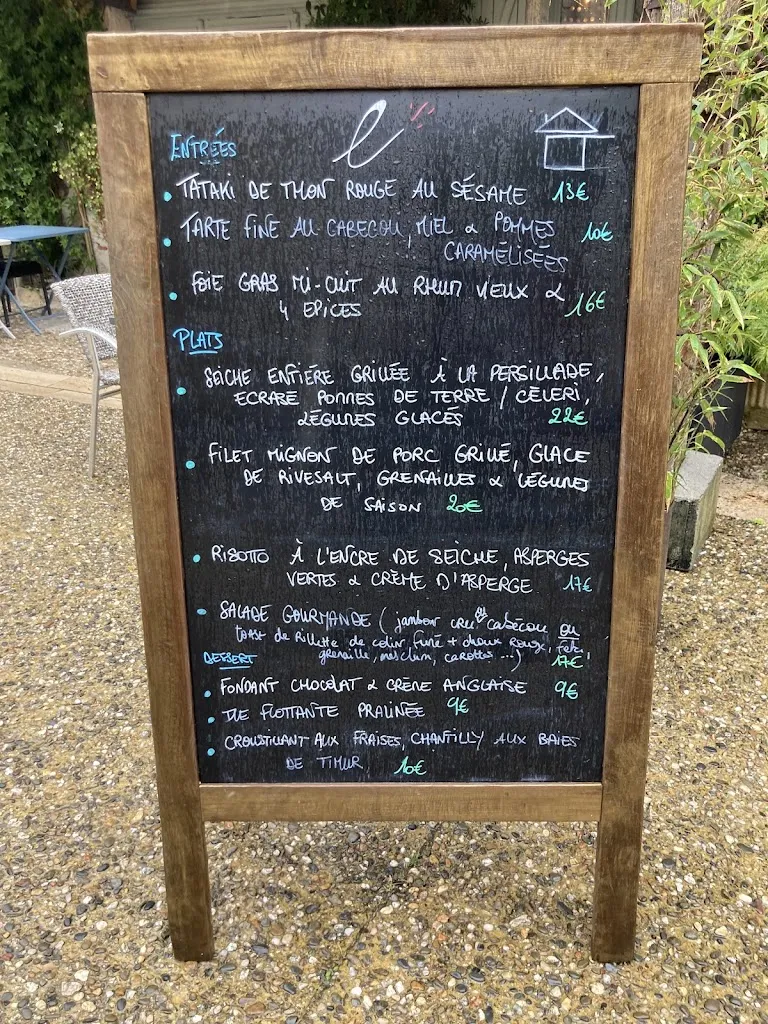 ENTRÉES
TATAKI DE THON ROUGE AU SÉSAME 13€
TARTE FINE AU CABECOU, MIEL & POMMES 10€
CARAMÉLISÉES
FOIE GRAS MI-CUIT AU RHUM VIEUX &
4 EPICES 16€
PLATS
SEICHE ENTIÉRE GRILLÉE À LA PERSILLADE,
ECRASÉ POMMES DE TERRE / CÉLERI,
LÉGUMES GLACÉS 22€
FILET MIGNON DE PORC GRILLÉ, GLACE
DE RIVESALT, GRENAILLES & LÉGUMES
DE SAISON 20€
RISOTTO À L'ENCRE DE SEICHE, ASPERGES
VERTES & CRÈME D'ASPERGE 17€
SALADE GOURMANDE (jambon cru cabécou ou
toast de rillette de colin fumé + choux rouge, feta,
grenaille, mesclun, carottes ...) 17€
DESSERT
FONDANT CHOCOLAT & CRÈME ANGLAISE 9€
ILE FLOTTANTE PRALINÉE 9€
CROUSTILLANT AUX FRAISES, CHANTILLY AUX BAIES
DE TIMUR 10€